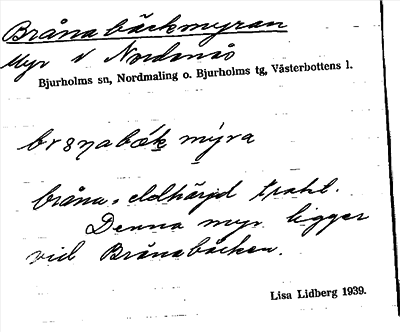 Brånabäckmyran
Myr N Nordansjö
Bjurholms sn, Nordmaling o. Bjurholms tg, Västerbottens l.
mýra
bråna, eldhärjd trakt.
Denna myr ligger
vid Brånabäcken.
Lisa Lidberg 1939.